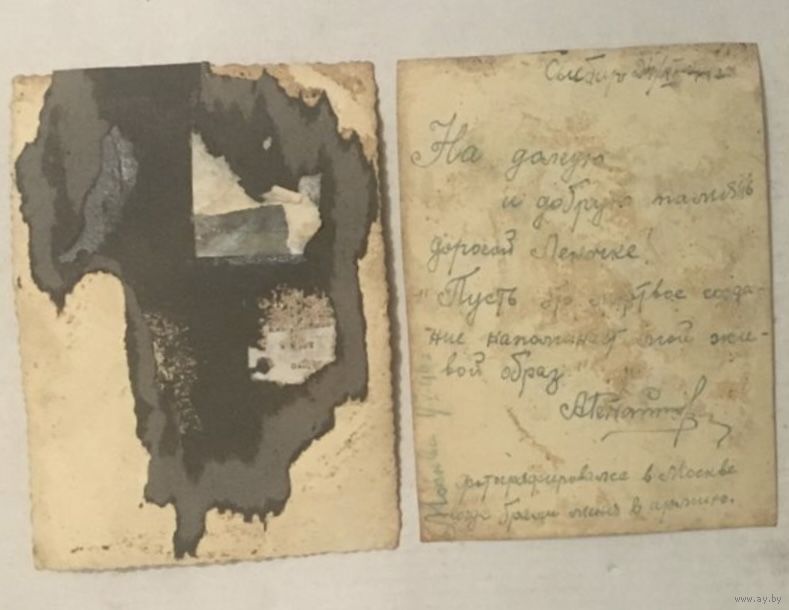 На долгую
и добрую память
дорогой Леночке!
"Пусть это мертвое созда-
ние напоминает мой жи-
вой образ"
фотографировался в Москве
когда брали меня в армию.
www.ay.by